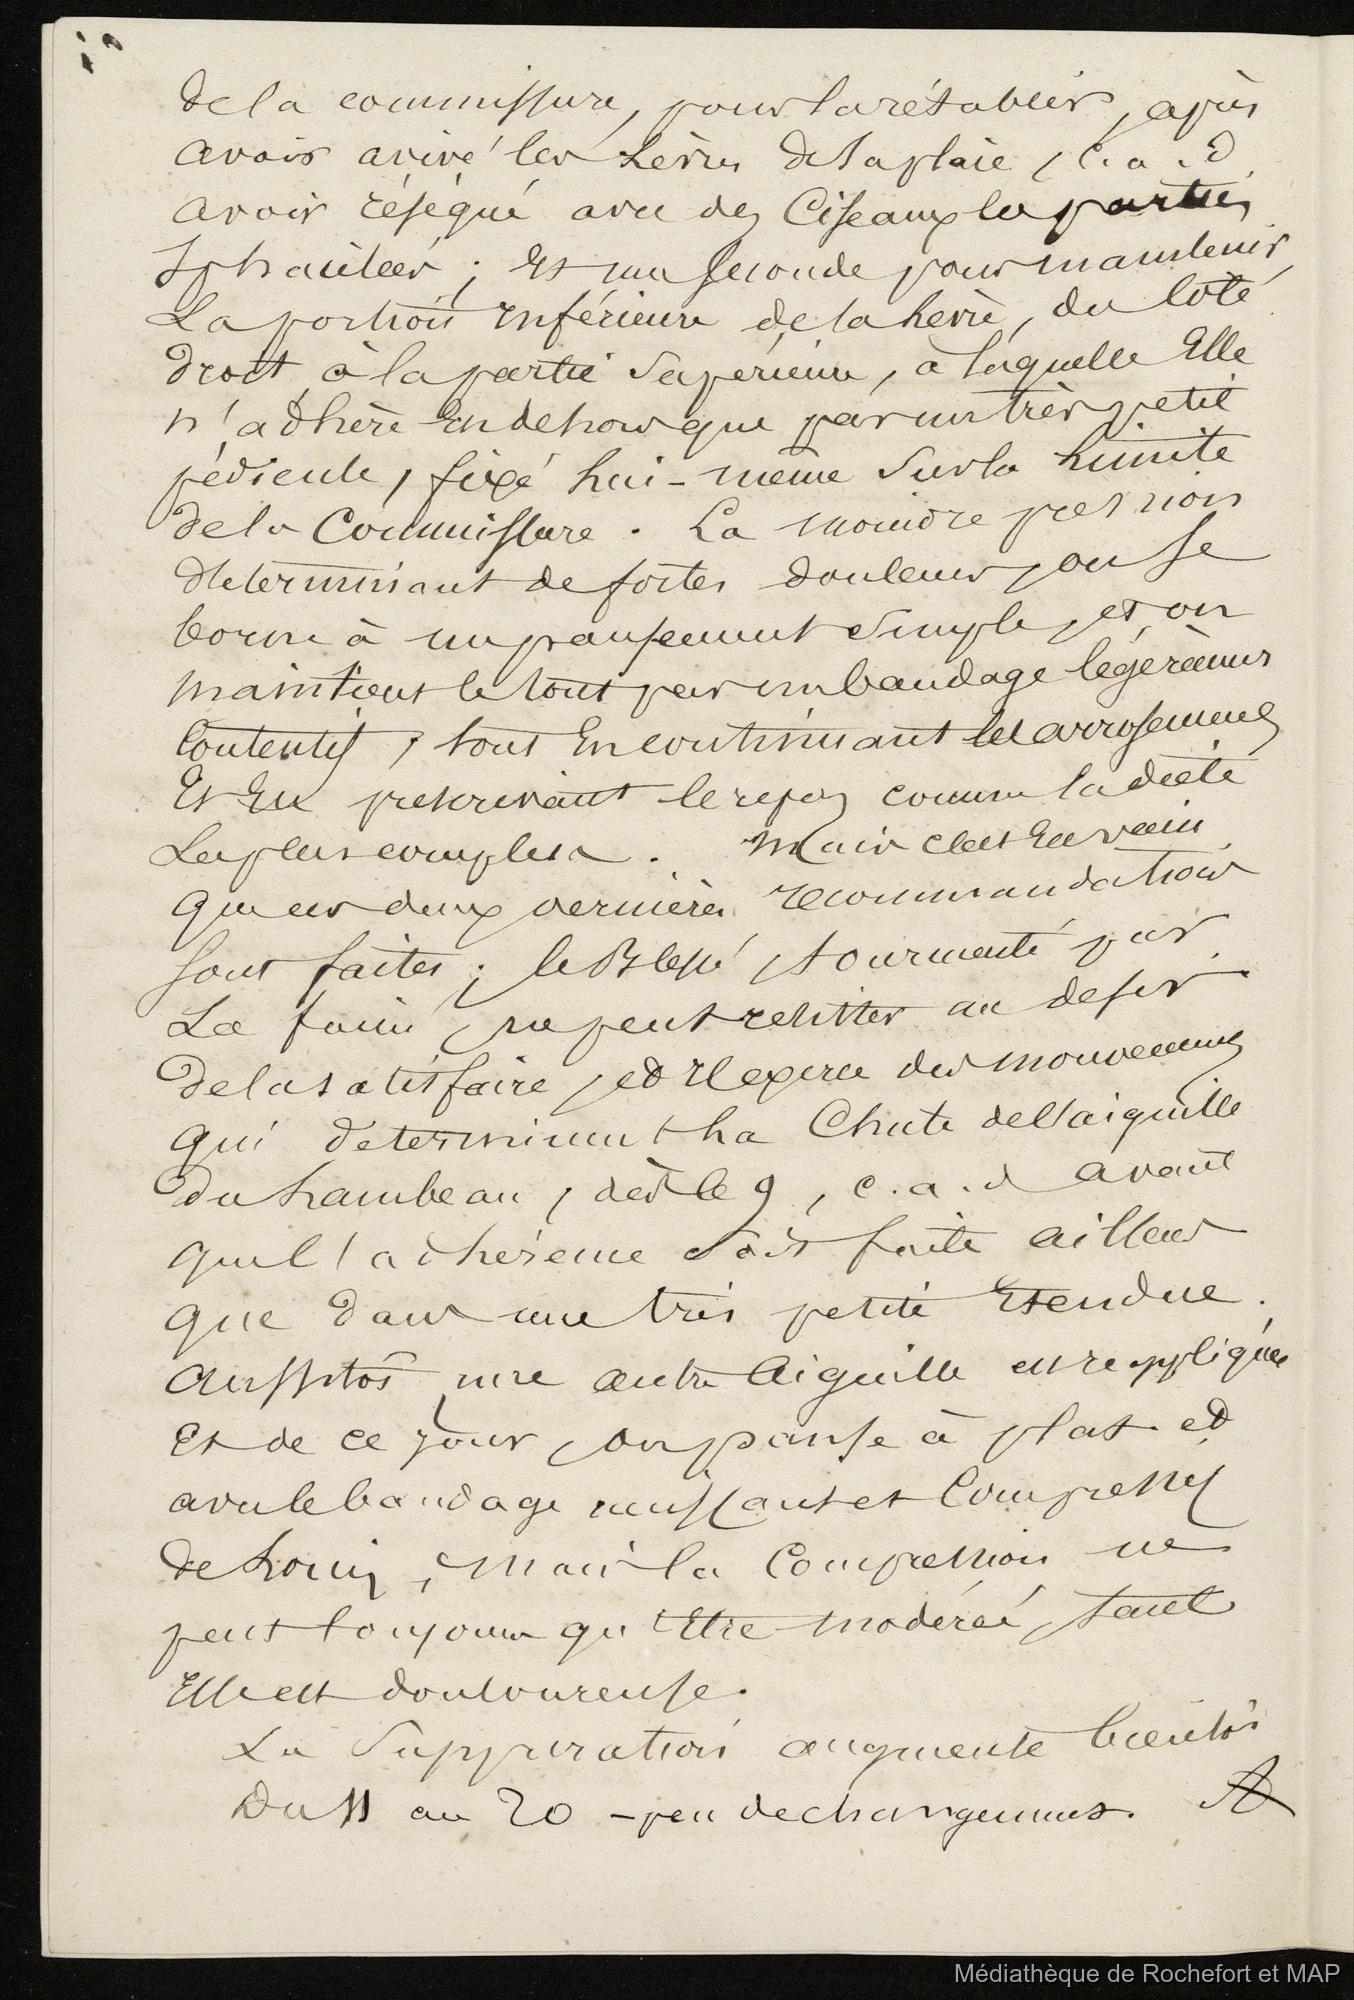 de la commissure, pour la rétablir, après
avoir avivé les lèvres de la plaie, c. a. d
avoir réséqué avec des Ciseaux les parties
sphacelées ; Et une seconde pour maintenir
La portion inférieure de la lèvre, du côté
droit, à la partie supérieure, à laquelle Elle
n'adhère En dehors que par un très petit
pédicule, fixé lui-même sur la limite
de la Commissure. La moindre pression
déterminant de fortes douleurs, on se
borne à un pansement simple, et on
maintient le tout par un bandage légèrement
Contentif, tout En continuant les arrosements
Et En prescrivant le repos comme la diète
La plus complète. Mais c'est En vain
que ces deux dernières recommandations
sont faites ; le Blessé, tourmenté par
La faim, ne peut résister au désir
De la satisfaire, et Il exerce des mouvements
qui déterminent La Chute de l'aiguille
Du Lambeau, dès le 9, c. a. d avant
que l'adhérence soit faite ailleurs
que dans une très petite Etendue.
Aussitôt une autre Aiguille est réappliquée
Et de ce jour, on panse à plat et
avec le bandage unissant et Compressif
de Louis, Mais la Compression ne
peut toujours qu'Etre modérée, tant
Elle est douloureuse.
La Suppuration augmente bientôt
Du 11 au 20 - peu de changements.